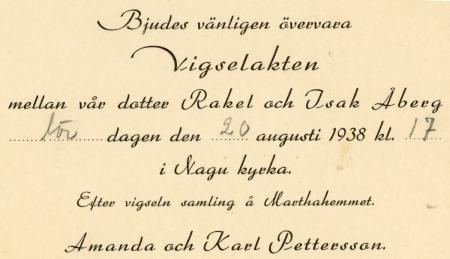 Bjudes vänligen övervara
Vigselakten
mellan vår dotter Rakel och Isak Åberg
lör dagen den 20 augusti 1938 kl. 17
i Nagu kyrka.
Efter vigseln samling å Marthahemmet.
Amanda och Karl Pettersson.